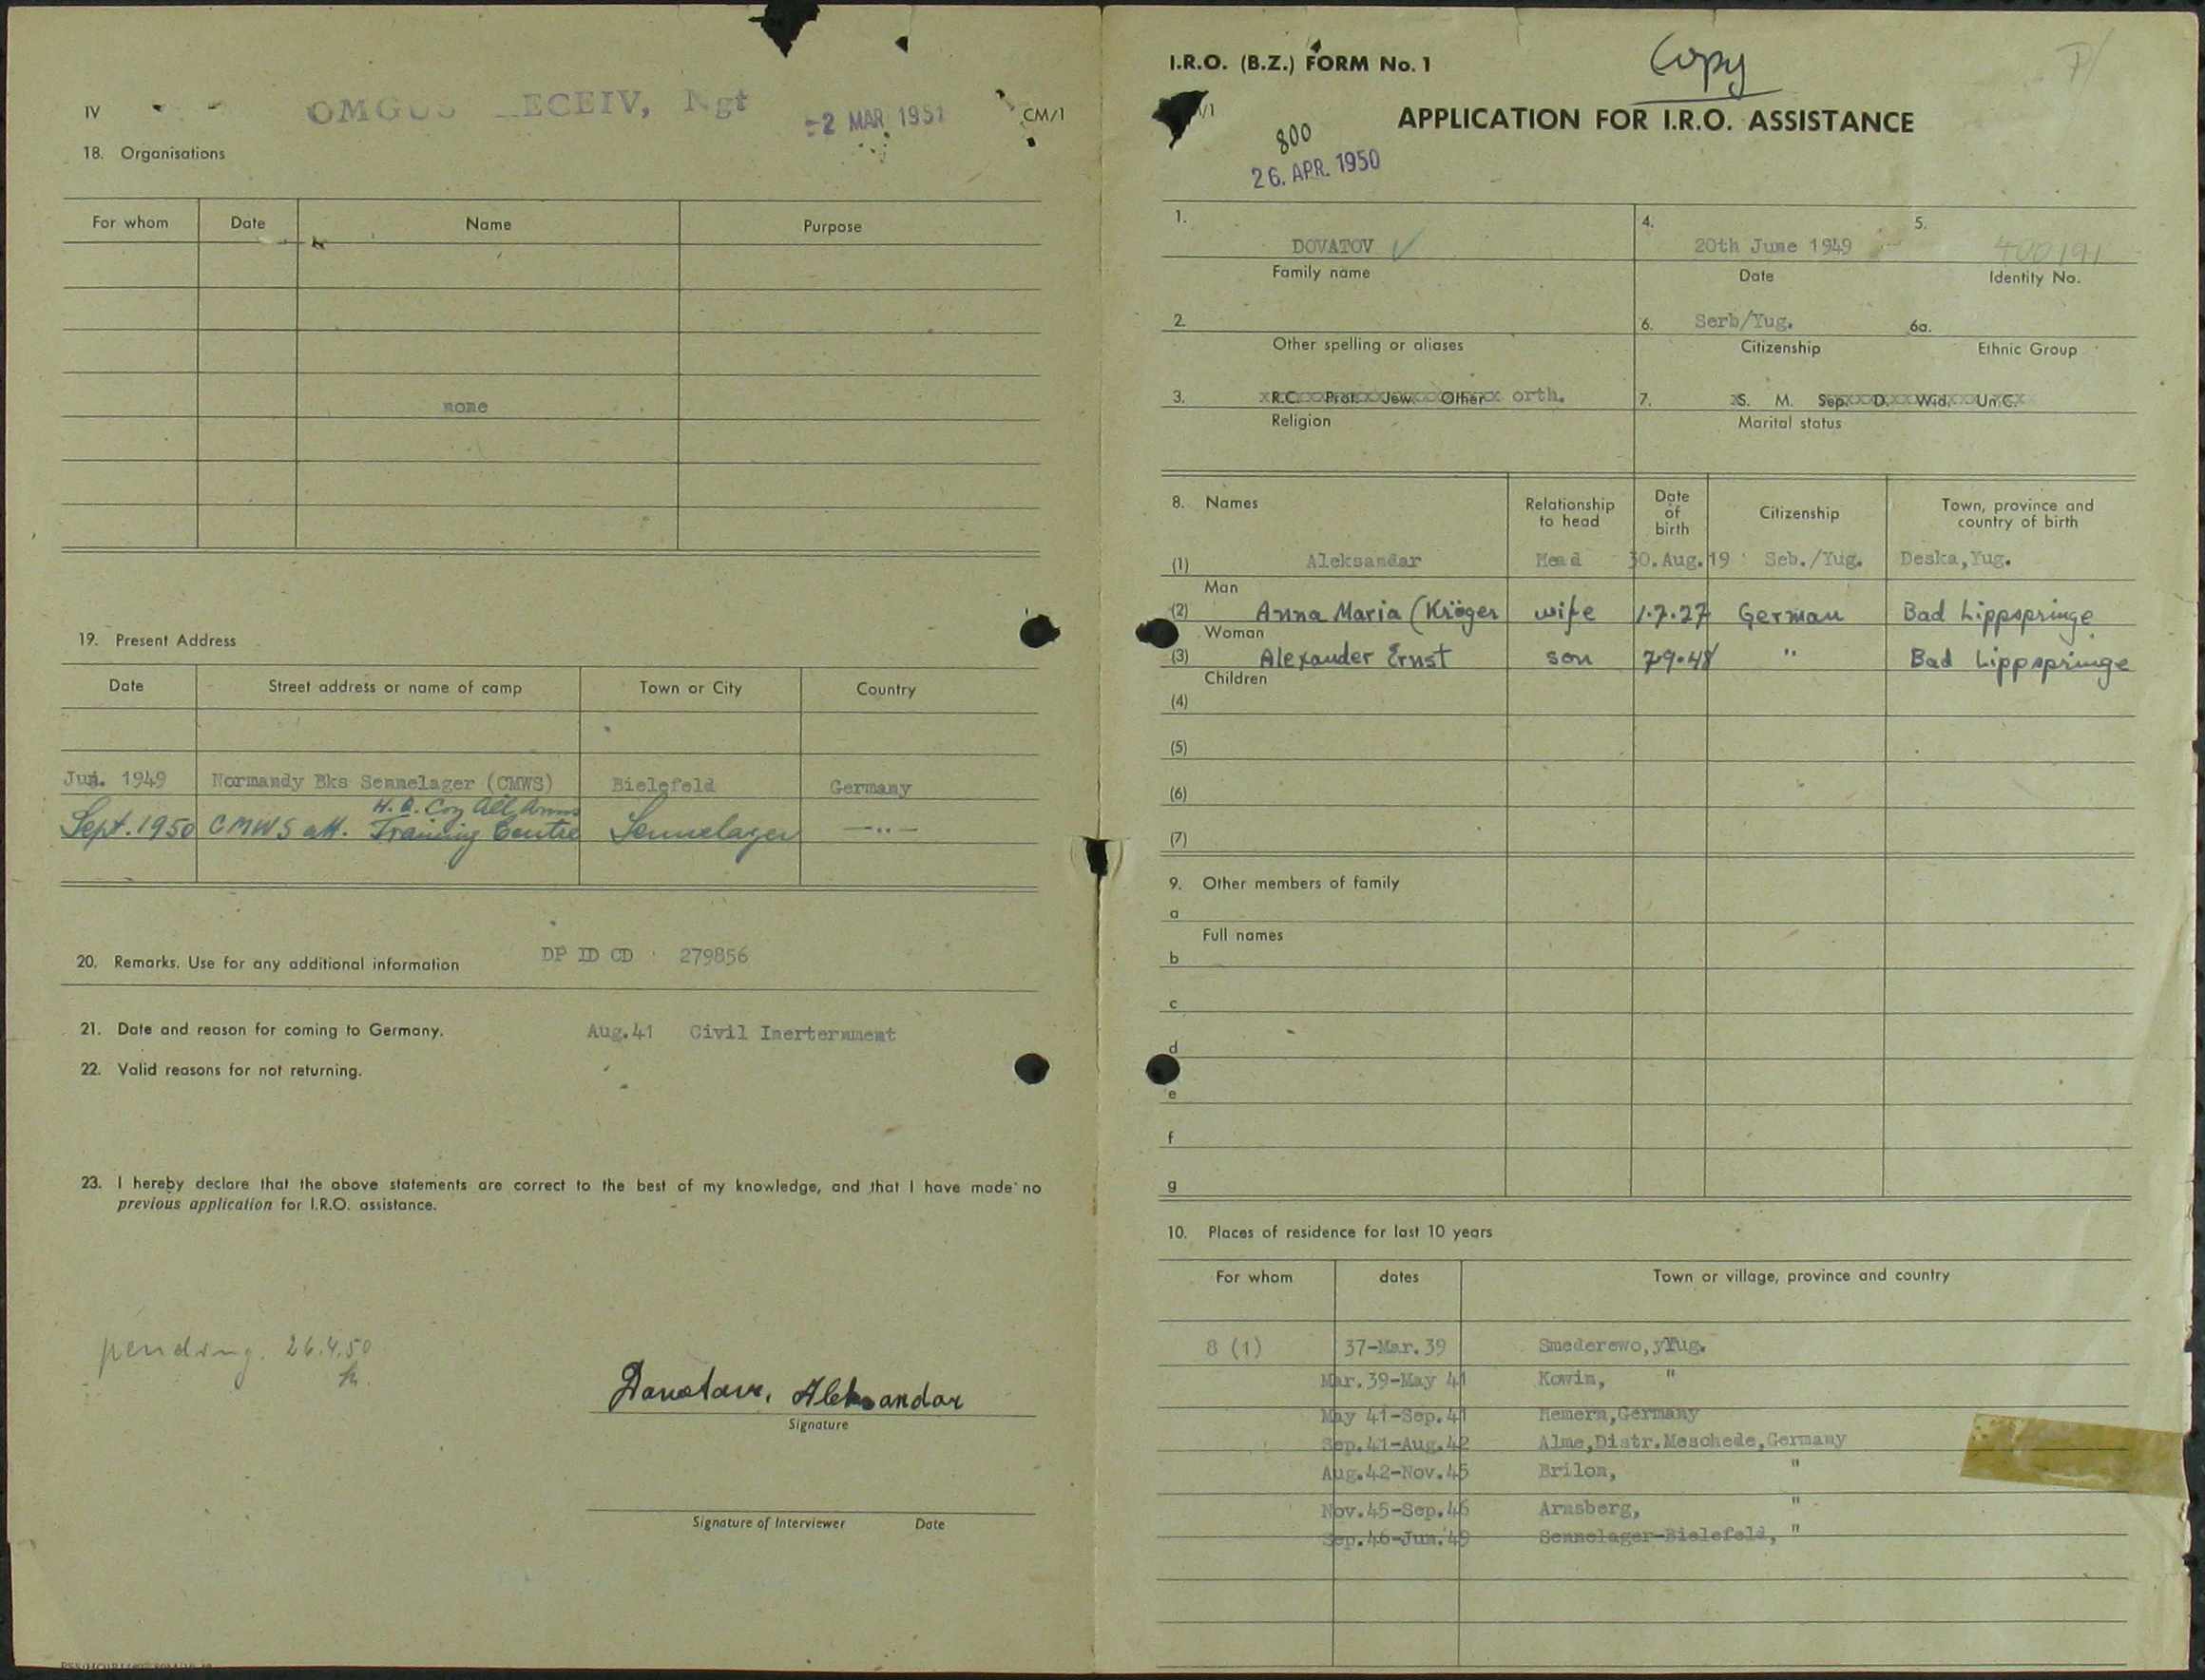 IV
ECEIV, Ngt
2 MAR 1951
CM/1
18. Organisations
For whom Date Name Purpose
none
19. Present Address
Date Street address or name of camp Town or City Country
Jun. 1949 Normandy Bks Sennelager (CMWS) Bielefeld Germany
H.Q. Coy All Arms
Sept. 1950 CMWS att. Training Centre Sennelager —..—
20. Remarks. Use for any additional information DP ID CD 279856
21. Date and reason for coming to Germany. Aug.41 Civil Inerternment
22. Valid reasons for not returning.
23. I hereby declare that the above statements are correct to the best of my knowledge, and that I have made no
previous application for I.R.O. assistance.
pending. 26.4.50
Aleksandar
Signature
Signature of Interviewer Date
I.R.O. (B.Z.) FORM No. 1
Copy
APPLICATION FOR I.R.O. ASSISTANCE
800
26. APR. 1950
1. DOVATOV
Family name
4. 20th June 1949
Date
5. 400191
Identity No.
2.
Other spelling or aliases
6. Serb/Yug.
Citizenship
6a.
Ethnic Group
3. R.C. Prot. Jew. Other orth.
Religion
7. S. M. Sep. D. Wid. Un.C.
Marital status
8. Names Relationship to head Date of birth Citizenship Town, province and country of birth
(1) Aleksandar Head 30.Aug.19 Seb./Yug. Deska,Yug.
Man
(2) Anna Maria (Kröger wife 1.7.27 German Bad Lippspringe
Woman
(3) Alexander Ernst son 7.9.48 " Bad Lippspringe
Children
(4)
(5)
(6)
(7)
9. Other members of family
a
Full names
b
c
d
e
f
g
10. Places of residence for last 10 years
For whom dates Town or village, province and country
8 (1) 37-Mar.39 Smederewo, Yug.
Mar.39-May 41 Kowin, "
May 41-Sep.41 Hemern,Germany
Sep.41-Aug.42 Alme,Distr.Meschede,Germany
Aug.42-Nov.45 Brilon, "
Nov.45-Sep.46 Arnsberg, "
Sep.46-Jun.49 Sennelager-Bielefeld, "